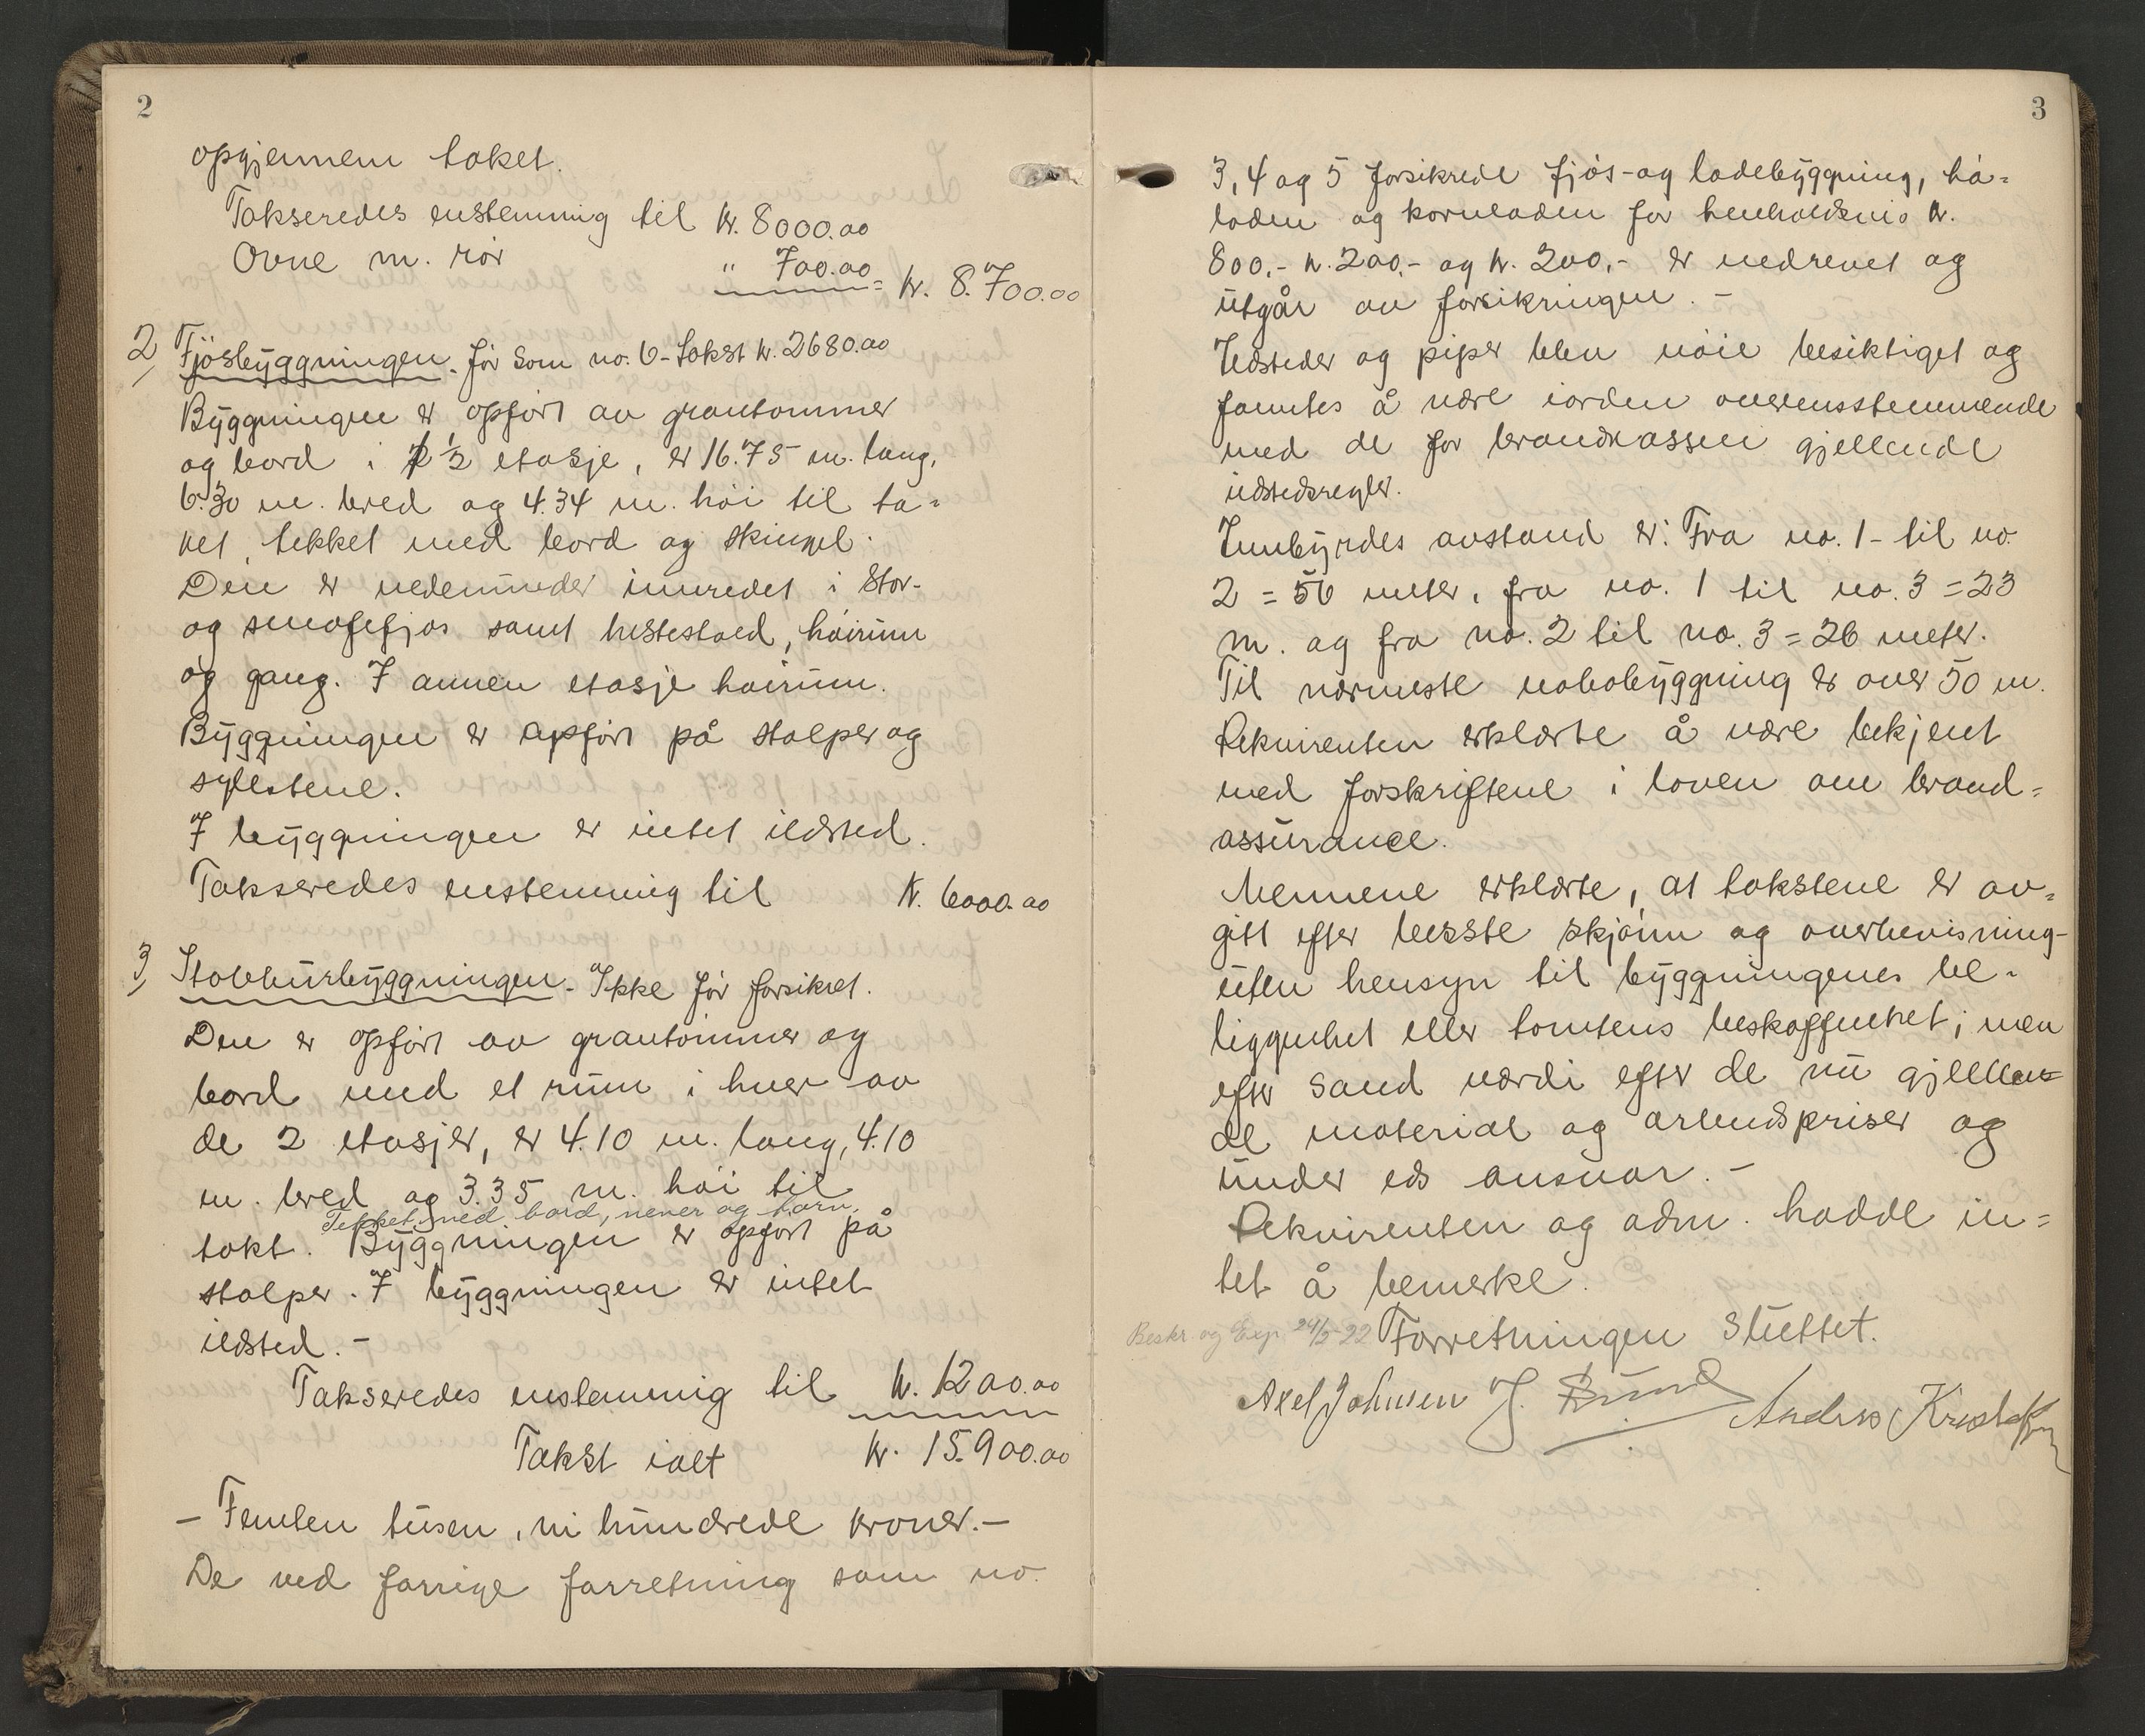 2
opgjennem taket.
Takseredes enstemmig til kr. 8000.00
Ovne m. rör " 700.00 = kr. 8.700.00
2, Fjösbyggningen. för som no. 6 - takst kr. 2680.00
Byggningen er opfört av grantömmer
og bord i 1/2 etasje, er 16.75 m. lang,
6.30 m. bred og 4.34 m. höi til ta=
ket, tekket med bord og skingel.
Den er nedenunder innredet i stor-
og smafefjös samt hestestald, höirum
og gang. I annen etasje höirum.
Byggningen er opfört på stolper og
syllstene.
I byggningen er intet ildsted.
Takseredes enstemmig til kr. 6000.00
3, Stabbursbyggningen. Ikke för forsikret.
Den er opfört av grantömmer og
bord med et rum i hver av
de 2 etasjer, er 4.10 m. lang, 4.10
m. bred og 3.35 m. höi til
Tekket med bord, never og törv.
takt. Byggningen er opfört på
stolper. I byggningen er intet
ildsted. -
Takseredes enstemmig til kr. 1200.00
Takst ialt kr. 15.900.00
- Femten tusen, ni hundrede kroner. -
De ved forrige forretning som no.
3
3, 4 og 5 forsikrede fjös- og ladebyggning, hö=
laden og kornladen for henholdsvis kr.
800,- kr. 200,- og kr. 200,- er nedrevet og
utgår av forsikringen. -
Ildsteder og piper blev nöie besiktiget og
fanntes å være iorden overensstemmende
med de for brandkassen gjellende
ildstedsregler.
Innbyrdes avstand er: Fra no. 1 - til no.
2 = 56 meter, fra no. 1 til no. 3 = 23
m. og fra no. 2 til no. 3 = 26 meter.
Til nærmeste nabobyggning er over 50 m.
Rekvirenten erklærte å være bekjent
med forskriftene i loven om brand=
assurance.
Mennene erklærte, at takstene er av=
gitt efter beste skjönn og overbevisning-
uten hensyn til byggningenes be=
liggenhet eller tomtens beskaffenhet; men
efter sand værdi efter de nu gjellen=
de material og arbeidspriser og
under eds ansvar. -
Rekvirenten og adm. hadde in=
tet å bemerke.
Beskr. og Exp. 24/5-22 Forretningen sluttet.
Axel Johnsen J. Andreas Kristoffersen